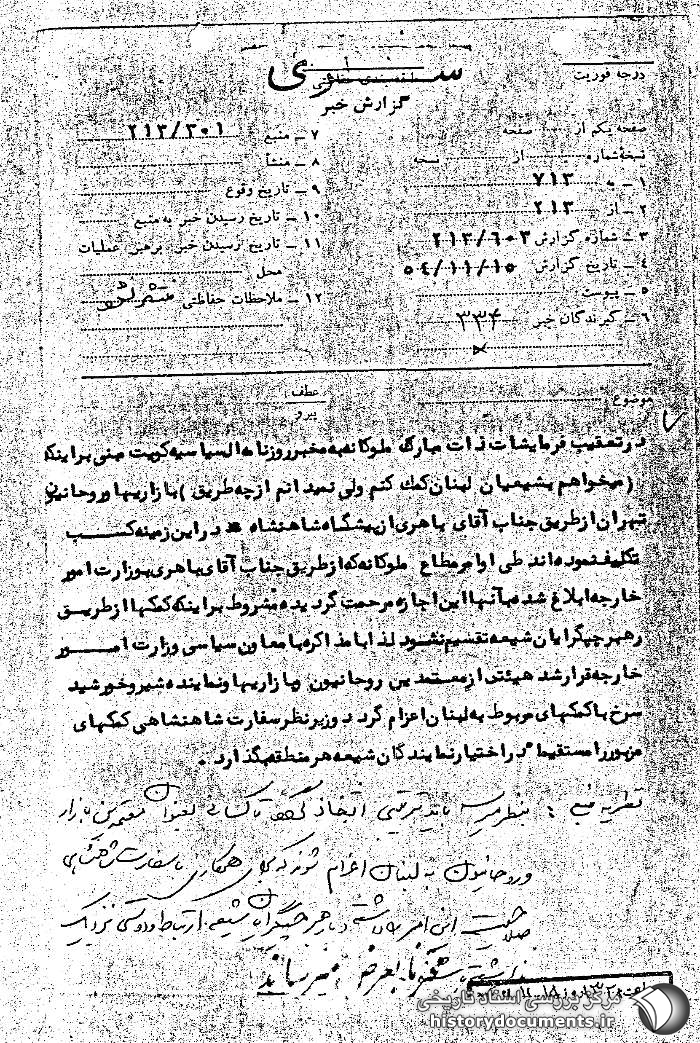 سری
طبقه بندی حفاظتی
گزارش خبر
درجه فوریت
صفحه یکم از صفحه
نسخه شماره از نسخه
۱ - به ۷۱۳
۲ - از ۲۱۳
۳ - شماره گزارش ۲۱۳/۶۰۳
۴ - تاریخ گزارش ۵۴/۱۱/۱۵
۵ - پیوست
۶ - گیرندگان خبر ۳۳۴
۷ - منبع ۲۱۳/۳۰۱
۸ - منشأ
۹ - تاریخ وقوع
۱۰ - تاریخ رسیدن خبر به منبع
۱۱ - تاریخ رسیدن خبر برهبر عملیات
محل
۱۲ - ملاحظات حفاظتی
موضوع
عطف
پیرو
در تعقیب فرمایشات ذات مبارک ملوکانه به مخبر روزنامه السیاسیه کویت مبنی بر اینکه
(میخواهم بشیعیان لبنان کمک کنم ولی نمیدانم از چه طریق) بازاریها و روحانیون
تهران از طریق جناب آقای باهری از پیشگاه شاهنشاه در این زمینه کسب
تکلیف نموده اند طی اوامر مطاع ملوکانه که از طریق جناب آقای باهری بوزارت امور
خارجه ابلاغ شده بآنها این اجازه مرحمت گردیده مشروط بر اینکه کمکها از طریق
رهبر چپگرایان شیعه تقسیم نشود لذا با مذاکره با معاون سیاسی وزارت امور
خارجه قرار شد هیئتی از معتمدین روحانیون و بازاریها و نماینده شیر و خورشید
سرخ با کمکهای مربوط به لبنان اعزام گردد و زیر نظر سفارت شاهنشاهی کمکهای
مزبور را مستقیما در اختیار نمایندگان شیعه هر منطقه بگذارد.
نظریه منبع : بنظر میرسد باید ترتیبی اتخاذ گردد تا کسانی بعنوان معتمدین بازار
و روحانیون به لبنان اعزام شوند که برای همکاری با سفارت شاهنشاهی
صلاحیت این امر را داشته و با رهبر چپگرایان شیعه ارتباط و دوستی نزدیک
نداشته
مرکز بررسی اسناد تاریخی
historydocuments.ir